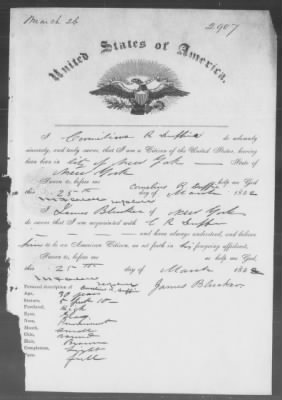 March 26
2907
United States of America.
I Cornelius R Duffie do solemnly
sincerely, and truly swear, that I am a Citizen of the United States, having
been born in City of New York State of
New York
Sworn to, before me so help me God
Cornelius R Duffie
this 25th day of March 1862
I James Bleecker of New York
do swear that I am acquainted with C R Duffie
and have always understood, and believe
him to be an American Citizen, as set forth in his foregoing affidavit.
Sworn to, before me so help me God
this 25th day of March 1862
James Bleecker
Personal description of Cornelius R Duffie
Age, 30 years
Stature, 5 feet 10
Forehead, High
Eyes,
Nose, Prominent
Mouth, small
Chin, round
Hair, Brown
Complexion, light
Face, full